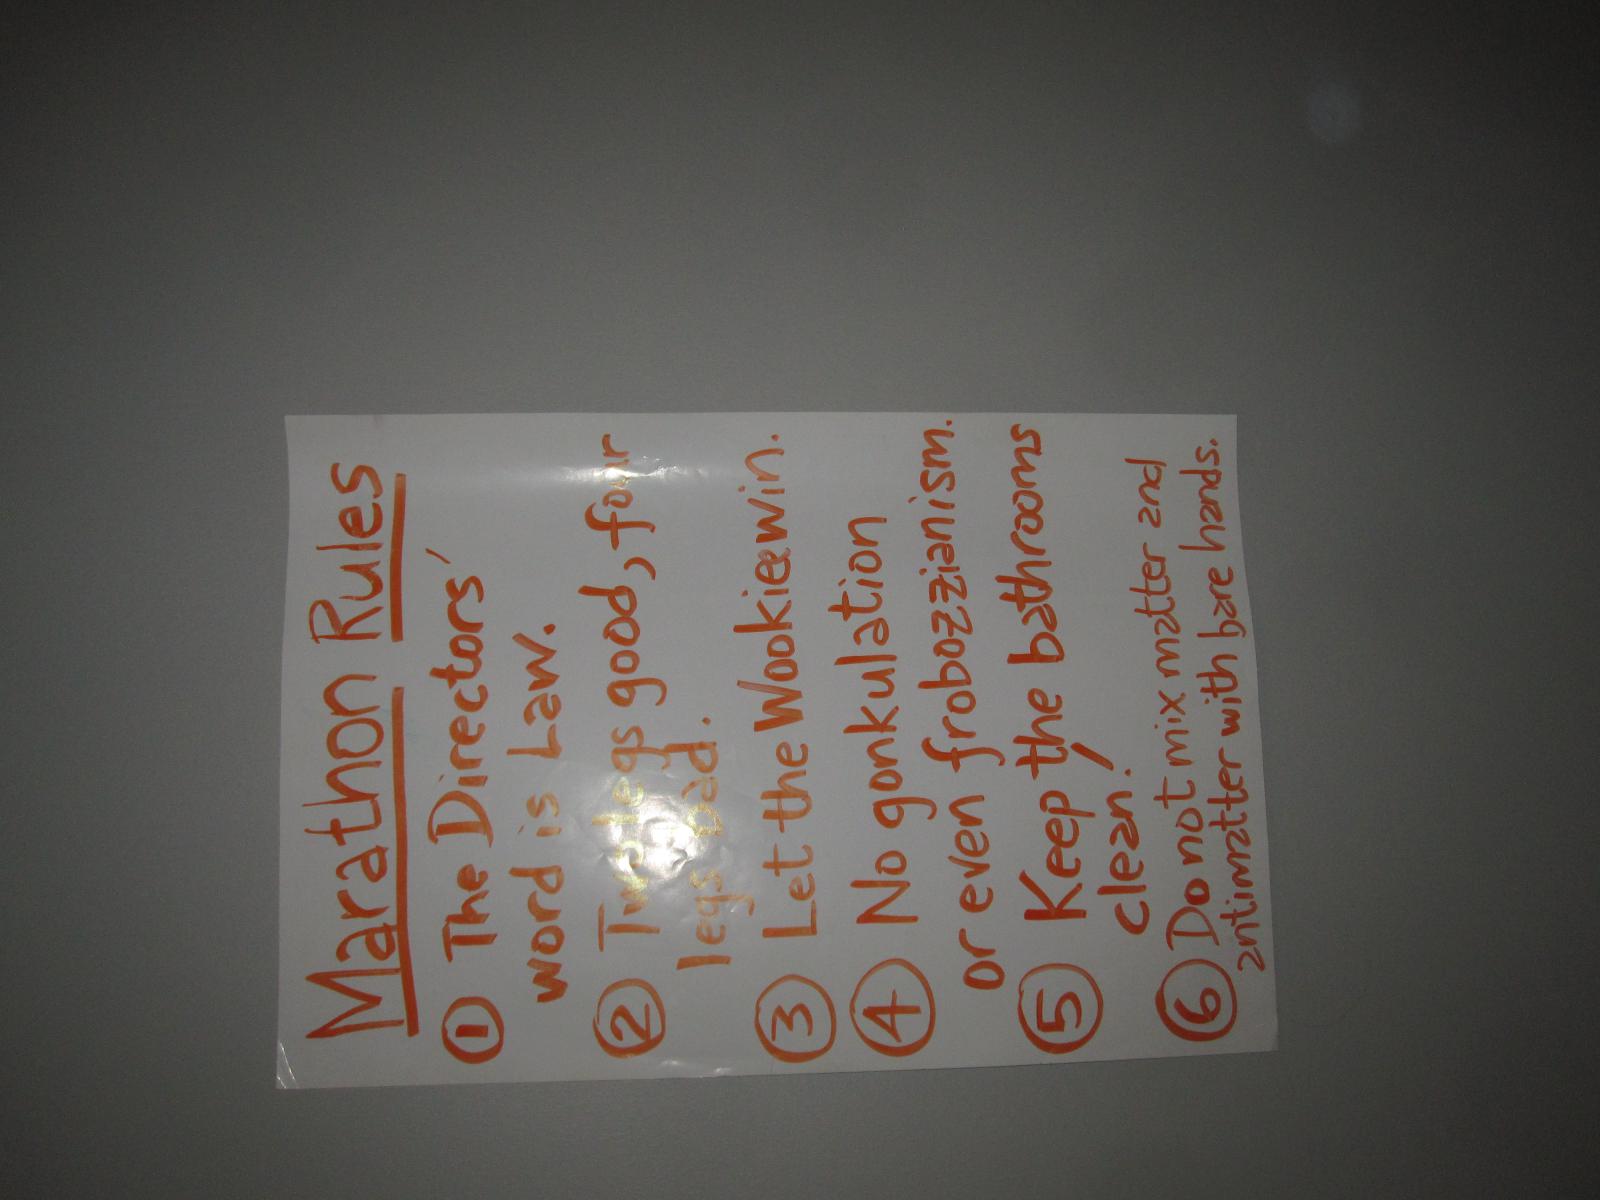 Marathon Rules
1 The Directors'
word is Law.
2 Two legs good, four
legs bad.
3 Let the Wookiee win.
4 No gonkulation
or even frobozzianism.
5 Keep the bathrooms
clean!
6 Do not mix matter and
antimatter with bare hands.